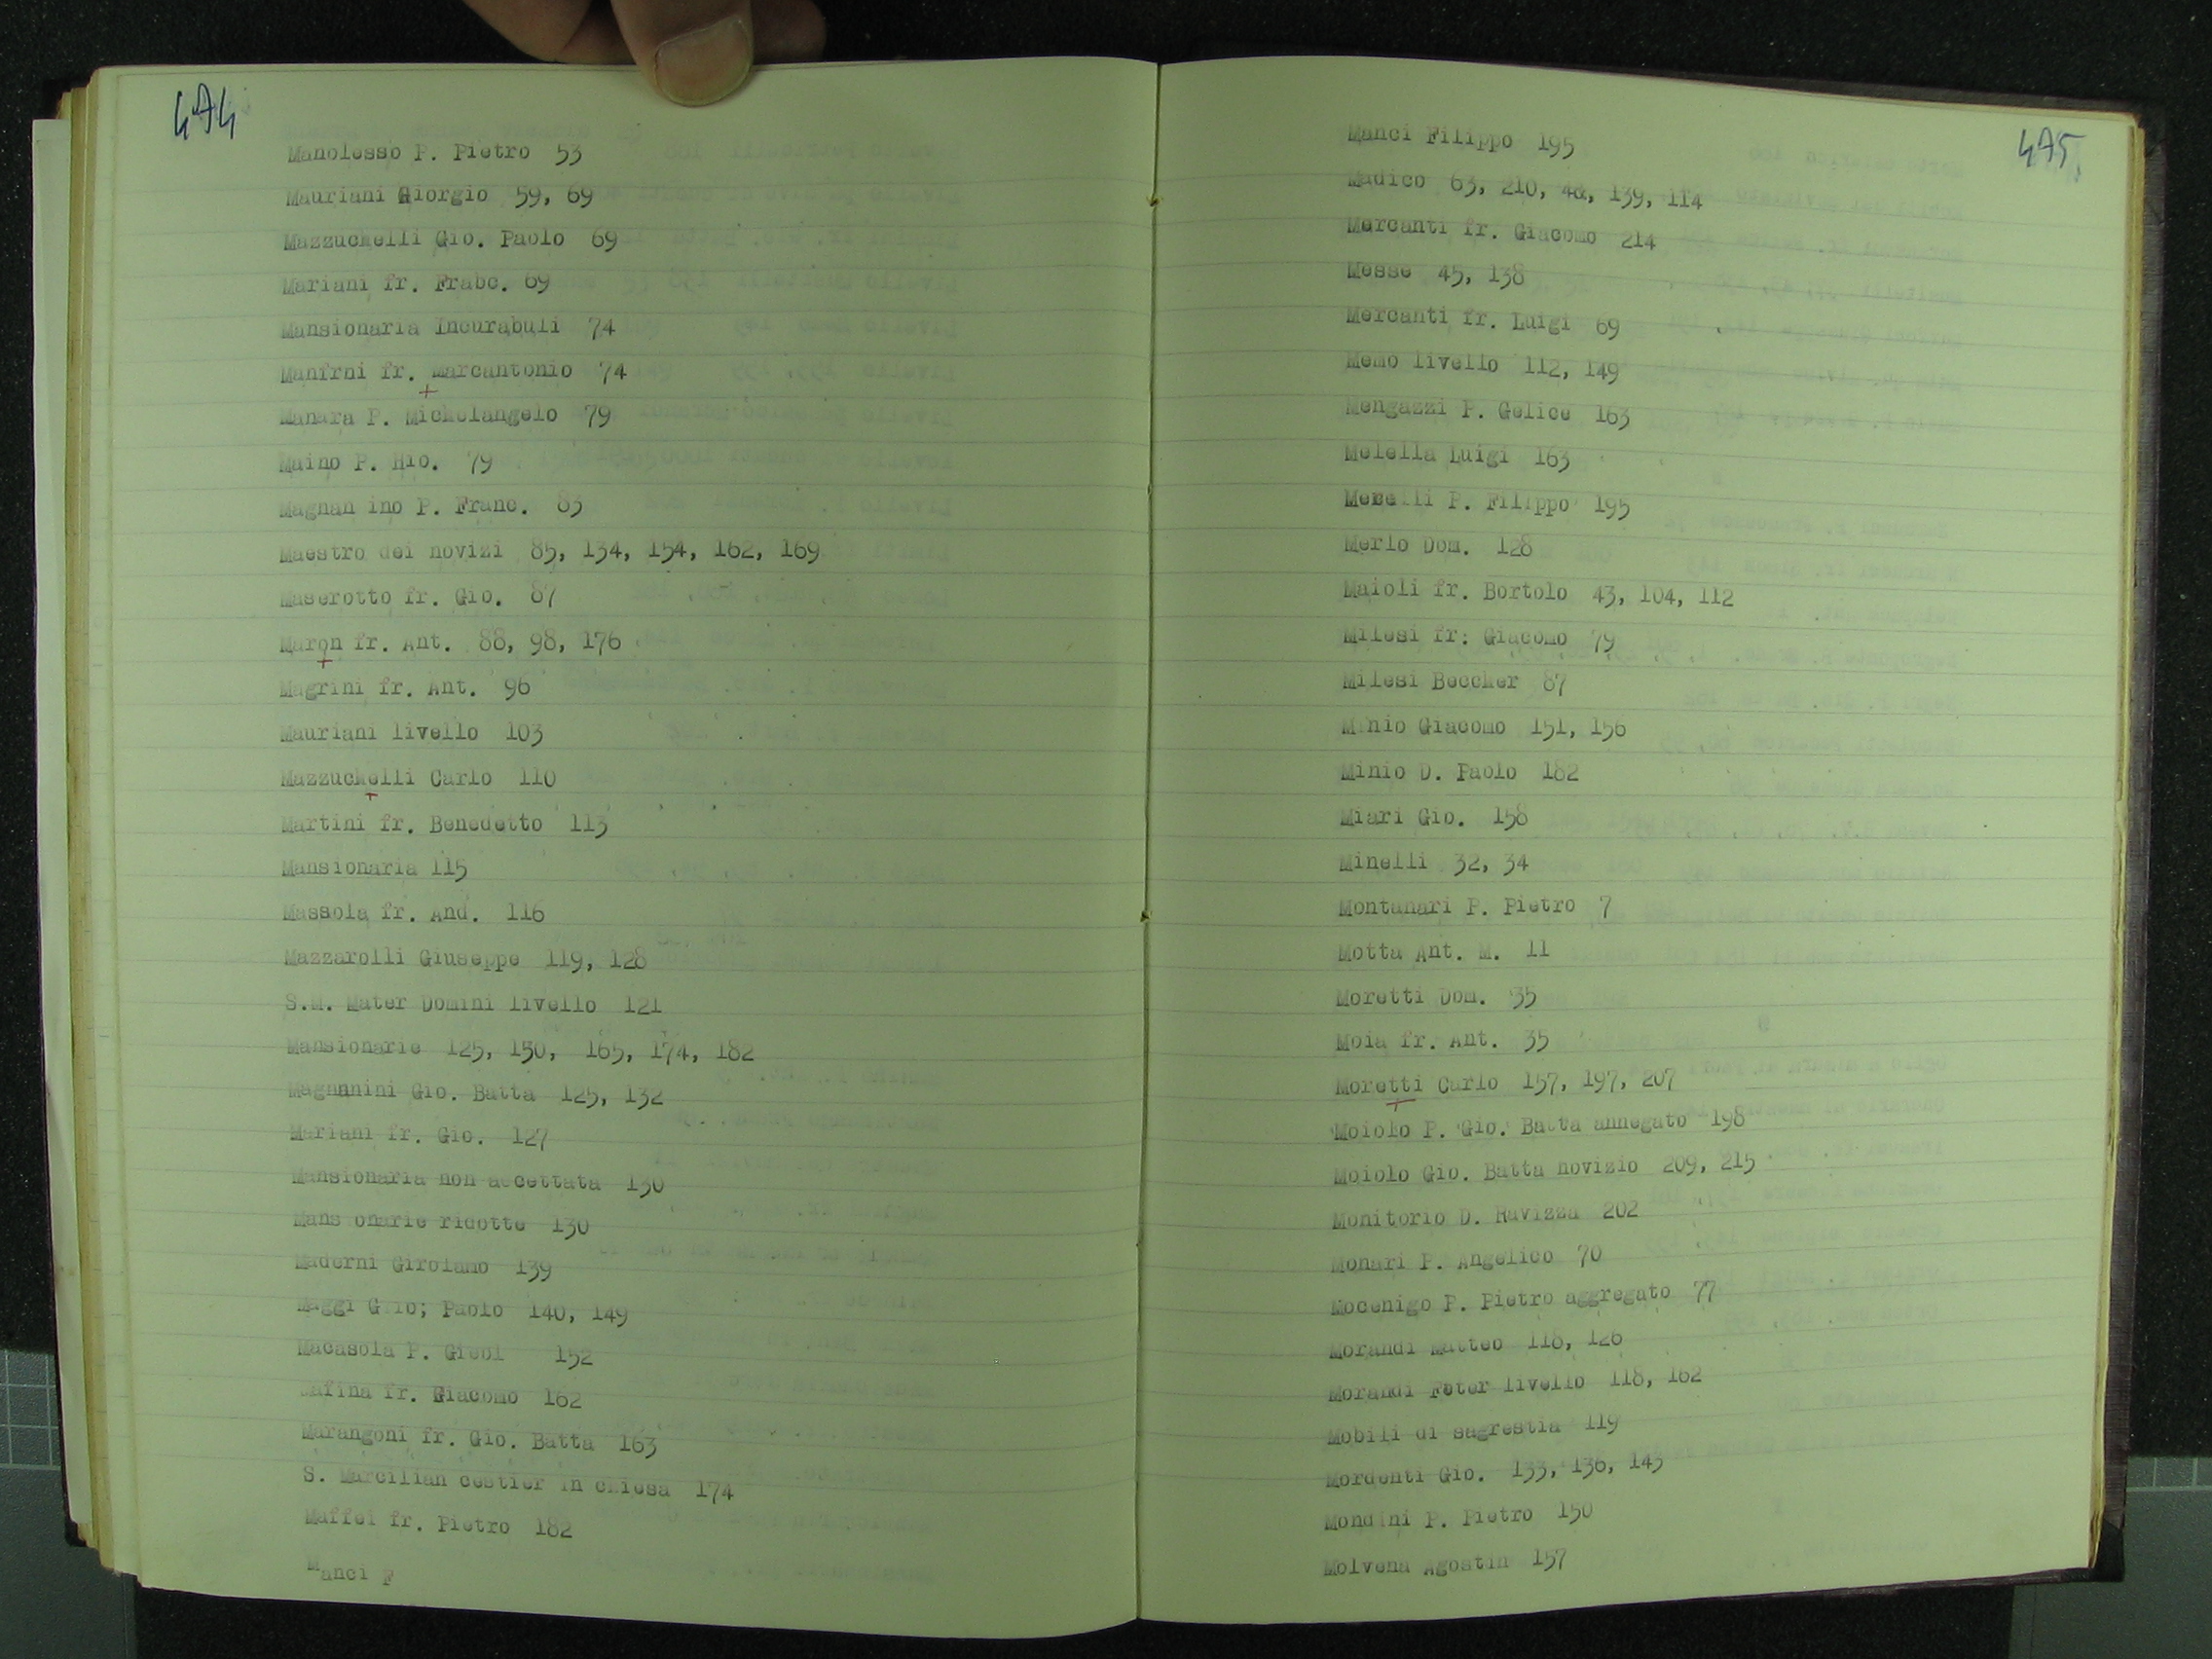 474
Manolesso P. Pietro 53
Mauriani Giorgio 59, 69
Mazzuchelli Gio. Paolo 69
Mariani fr. Frabc. 69
Mansionaria Incurabuli 74
Manfrni fr. Marcantonio 74
Manara P. Michelangelo 79
Maino P. Hio. 79
Magnan ino P. Franc. 83
Maestro dei novizi 85, 134, 154, 162, 169
Maserotto fr. Gio. 87
Maron fr. Ant. 88, 98, 176
Magrini fr. Ant. 96
Mauriani livello 103
Mazzuchelli Carlo 110
Martini fr. Benedetto 113
Mansionaria 115
Massola fr. And. 116
Mazzarolli Giuseppe 119, 128
S.M. Mater Domini livello 121
Mansionarie 125, 150, 165, 174, 182
Magnanini Gio. Batta 125, 132
Mariani fr. Gio. 127
Mansionaria non accettata 130
Mans onarie ridotte 130
Maderni Girolamo 139
Maggi Gio; Paolo 140, 149
Macasola P. Girol 152
Mafina fr. Giacomo 162
Marangoni fr. Gio. Batta 163
S. Marcilian cestier in chiesa 174
Maffei fr. Pietro 182
Manci F
475
Manci Filippo 195
Madico 63, 210, 139, 114
Mercanti fr. Giacomo 214
Messe 45, 138
Mercanti fr. Luigi 69
Memo livello 112, 149
Mengazzi P. Gelice 163
Melella Luigi 163
Merelli P. Filippo 195
Merlo Dom. 128
Maioli fr. Bortolo 43, 104, 112
Milesi fr: Giacomo 79
Milesi Beccher 87
Minio Giacomo 151, 156
Minio D. Paolo 182
Miari Gio. 158
Minelli 32, 34
Montanari P. Pietro 7
Motta Ant. M. 11
Moretti Dom. 35
Moia fr. Ant. 35
Moretti Carlo 157, 197, 207
Moiolo P. Gio. Batta annegato 198
Moiolo Gio. Batta novizio 209, 215
Monitorio D. Ravizza 202
Monari P. Angelico 70
Mocenigo P. Pietro aggregato 77
Morandi Matteo 118, 126
Morandi Foter livello 118, 162
Mobili di sagrestia 119
Mordenti Gio. 133, 136, 143
Mondini P. Pietro 150
Molvena Agostin 157